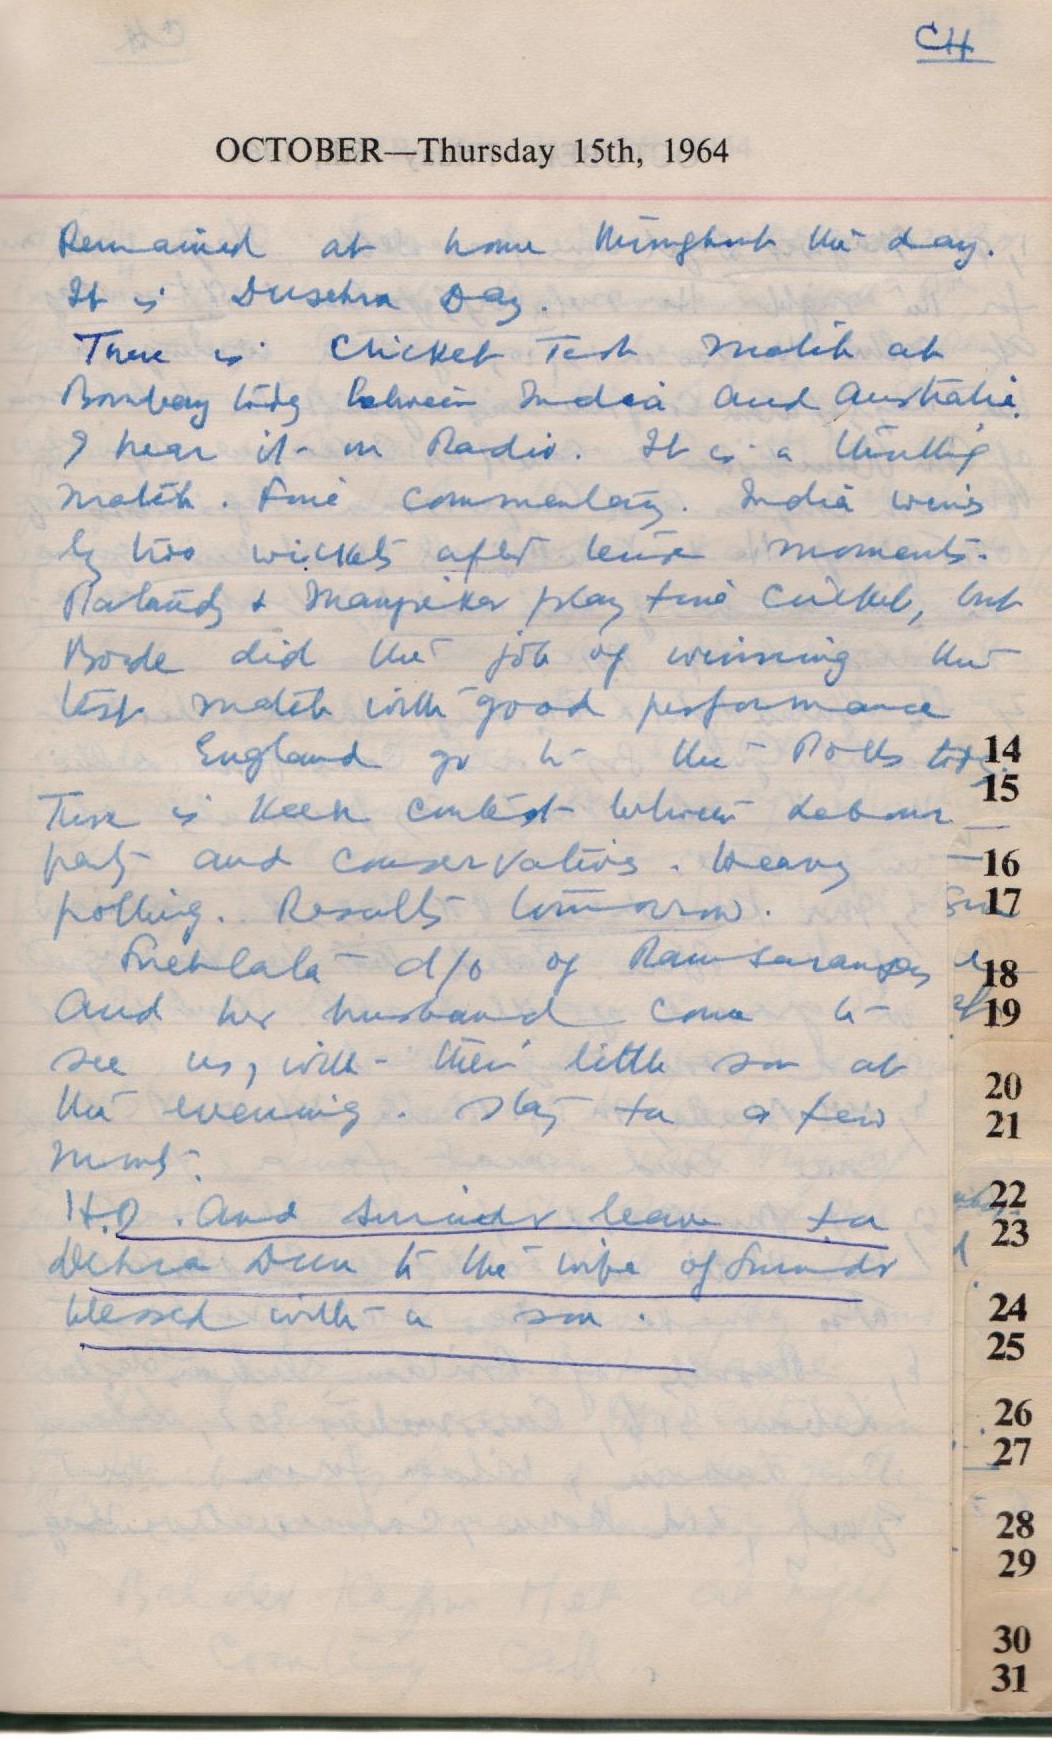 CH
OCTOBER—Thursday 15th, 1964
Remained at home throughout the day.
It is Dusehra Day.
There is Cricket Test Match at
Bombay today between India and Australia.
I hear it on Radio. It is a thrilling
match. Fine commentary. India wins
by two wickets after tense moments.
Pataudy & Manjrekar play fine cricket, but
Borde did the job of winning the
test match with good performance
England go to the Polls today.
There is keen contest between Labour
party and conservatives. Heavy
polling. Results tomorrow.
Snehlata d/o of Ramsarandas
and her husband come to
see us, with their little son at
the evening. Stay for a few
mints.
H.O. and Surinder leave for
Dehra Dun to the wife of Surinder
blessed with a son.
14
15
16
17
18
19
20
21
22
23
24
25
26
27
28
29
30
31